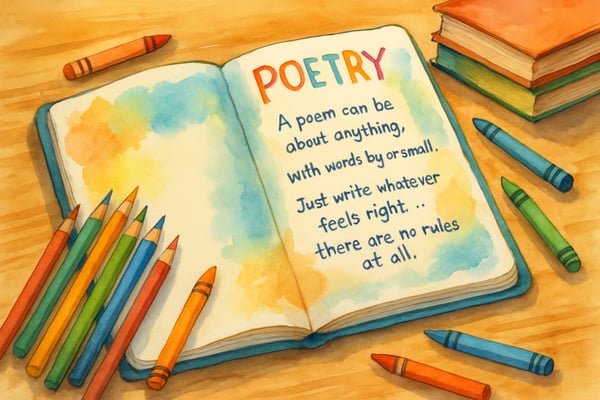 POETRY
A poem can be
about anything,
with words by or small.
Just write whatever
feels right. ..
there are no rules
at all.